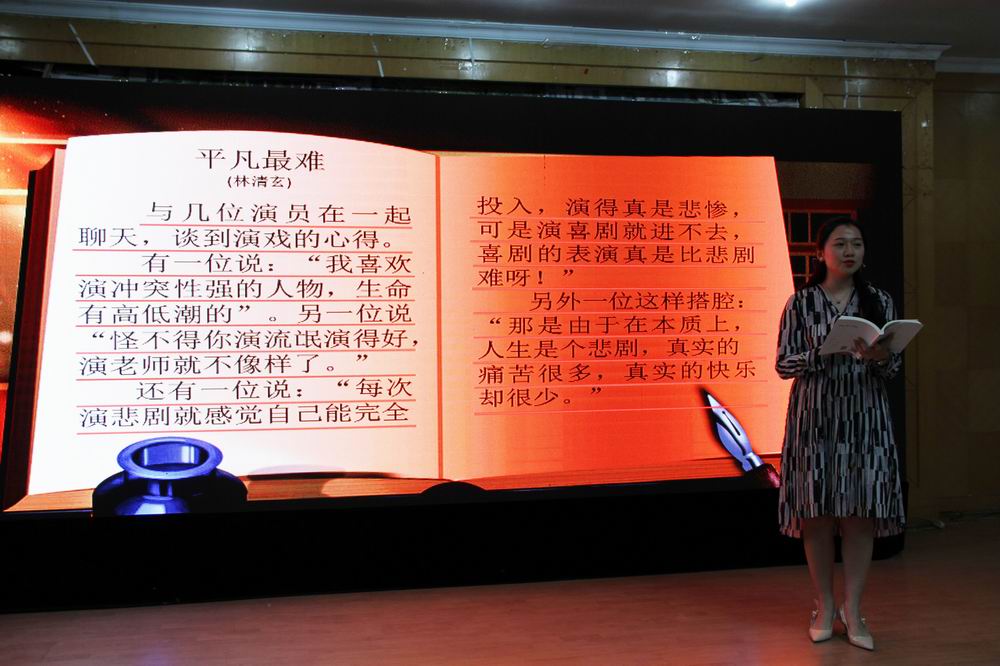 平凡最难
(林清玄)
与几位演员在一起
聊天，谈到演戏的心得。
有一位说：“我喜欢
演冲突性强的人物，生命
有高低潮的”。另一位说
“怪不得你演流氓演得好，
演老师就不像样了。”
还有一位说：“每次
演悲剧就感觉自己能完全
投入，演得真是悲惨，
可是演喜剧就进不去，
喜剧的表演真是比悲剧
难呀！”
另外一位这样搭腔：
“那是由于在本质上，
人生是个悲剧，真实的
痛苦很多，真实的快乐
却很少。”